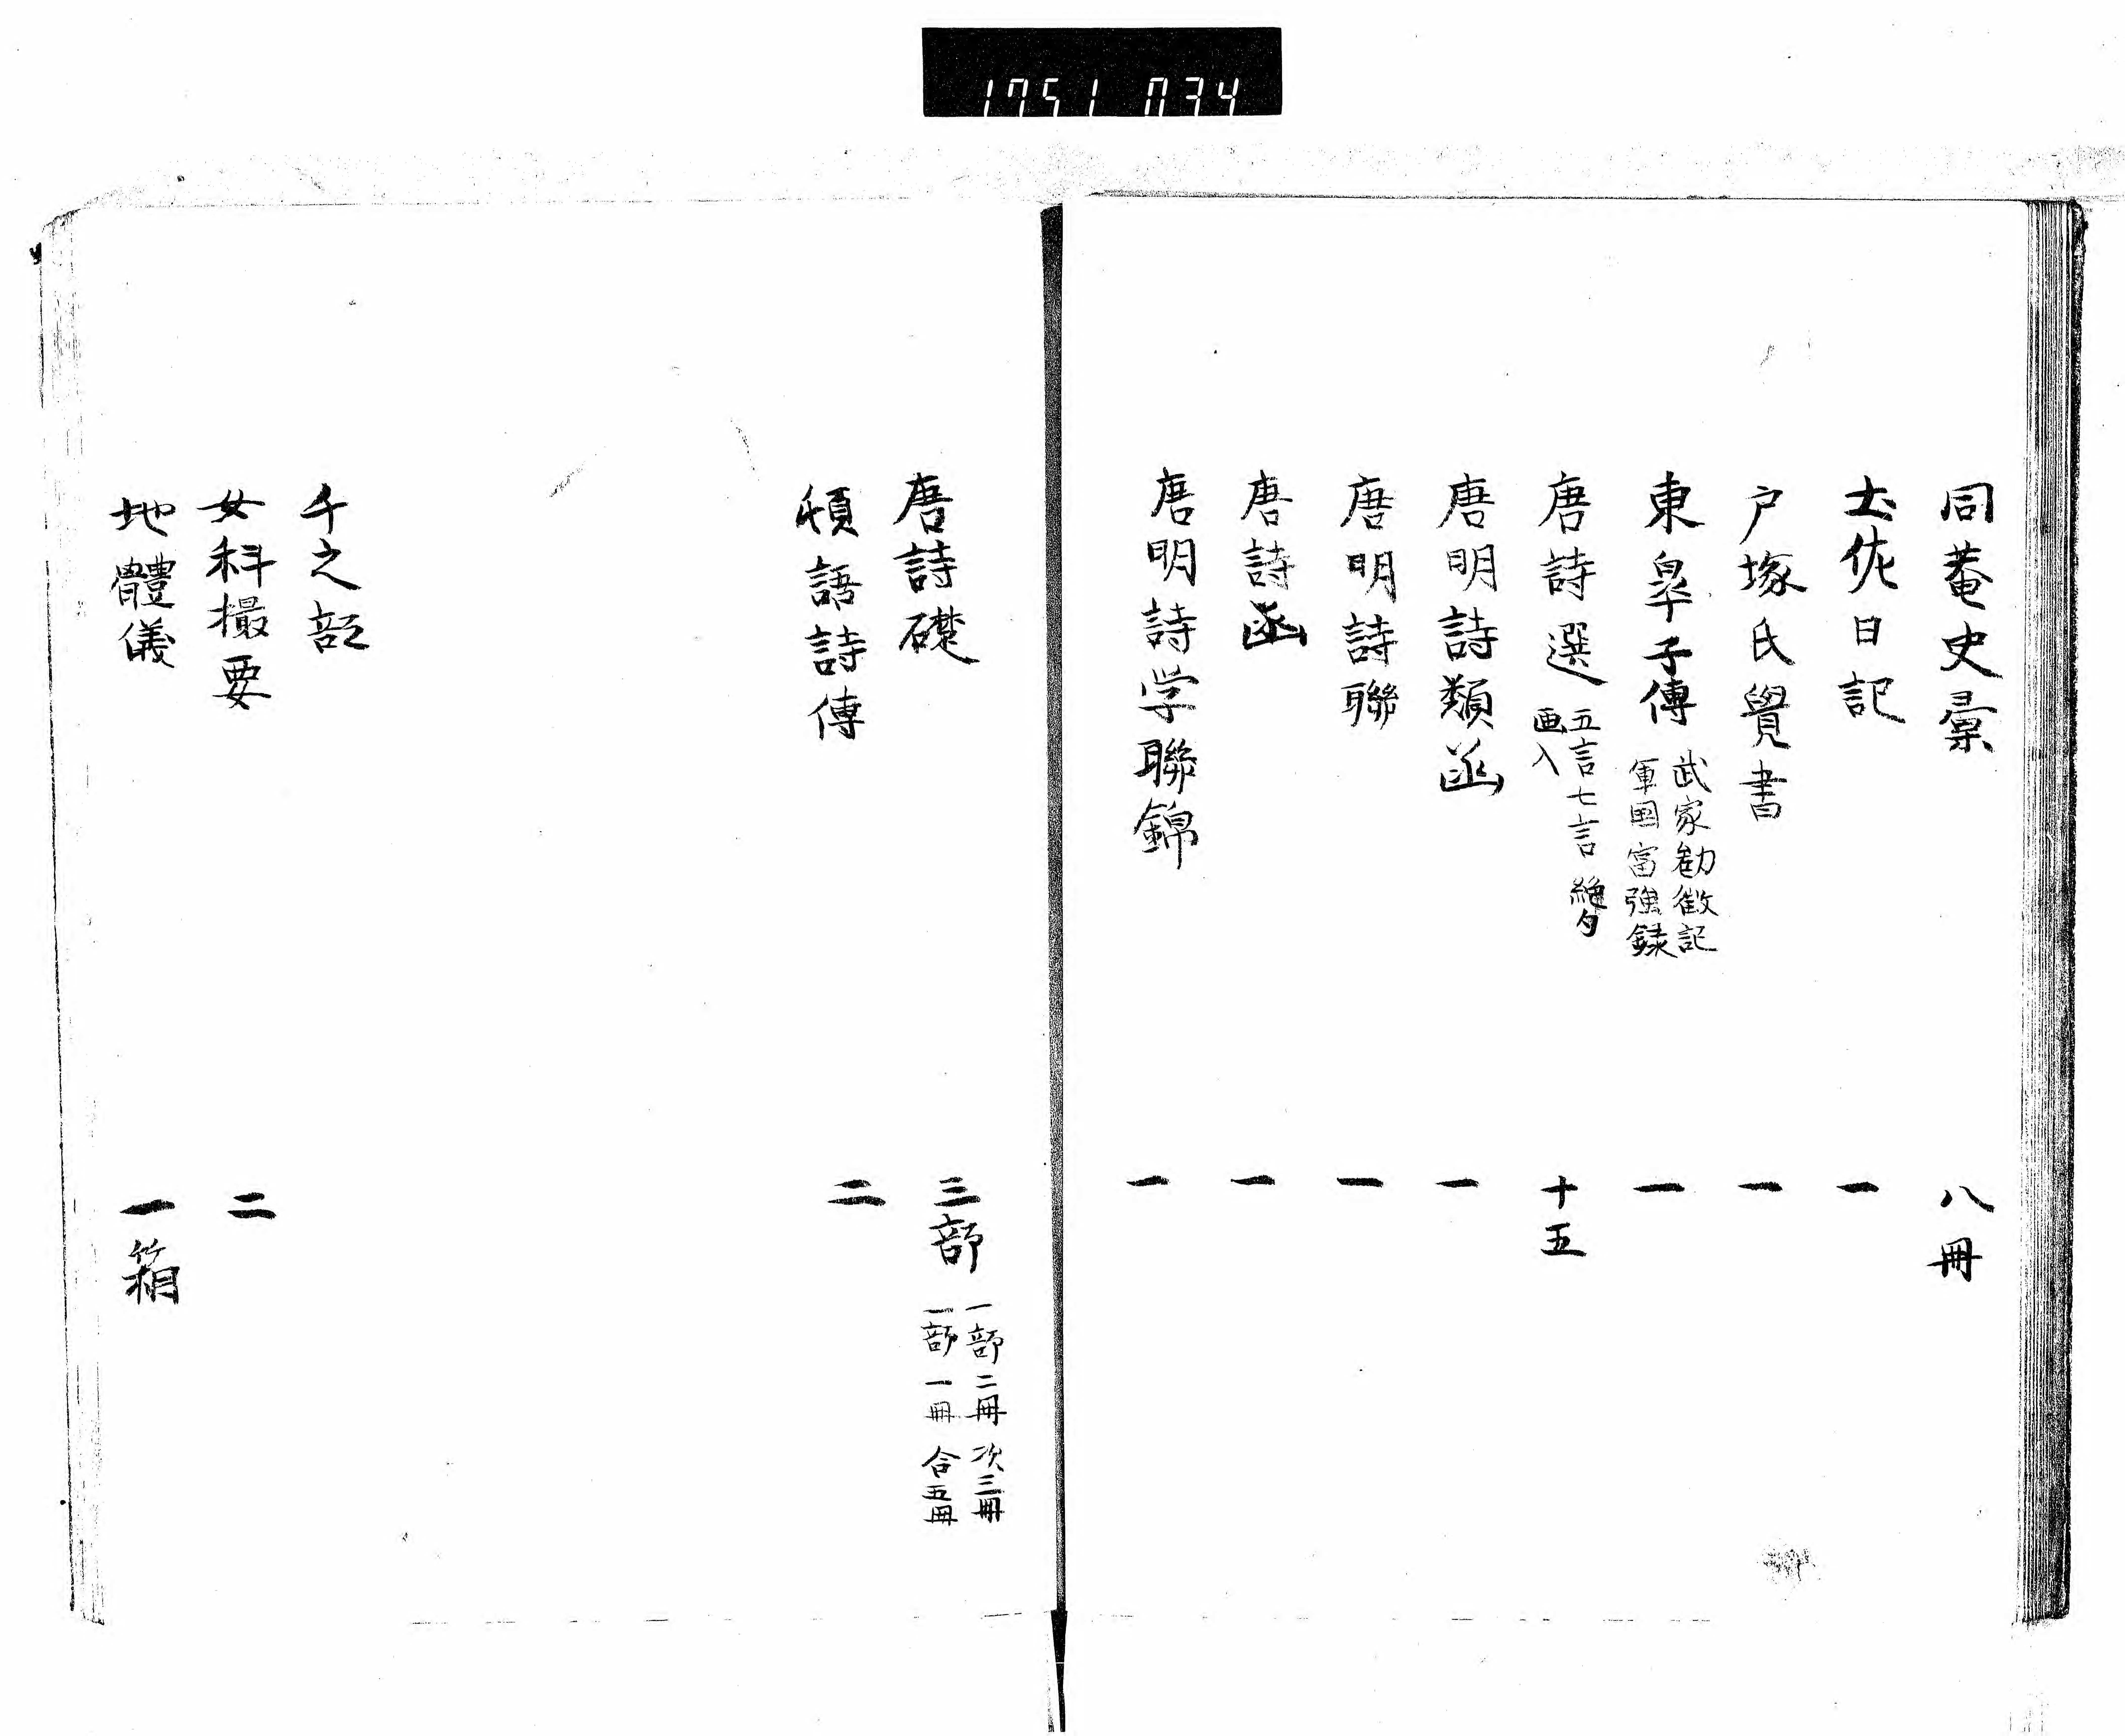 1751 034
同菴史彙 八冊
土佐日記 一
戸塚氏覺書 一
東皐子傳 武家勧徴記 軍国富強録 一
唐詩選 五言七言絶句 画入 十五
唐明詩類函 一
唐明詩聯 一
唐詩函 一
唐明詩学聯錦 一
唐詩礎 三部 一部二冊 次三冊 一部一冊 合五冊
頓語詩傳 二
チ之部
女科撮要 二
地體儀 一箱